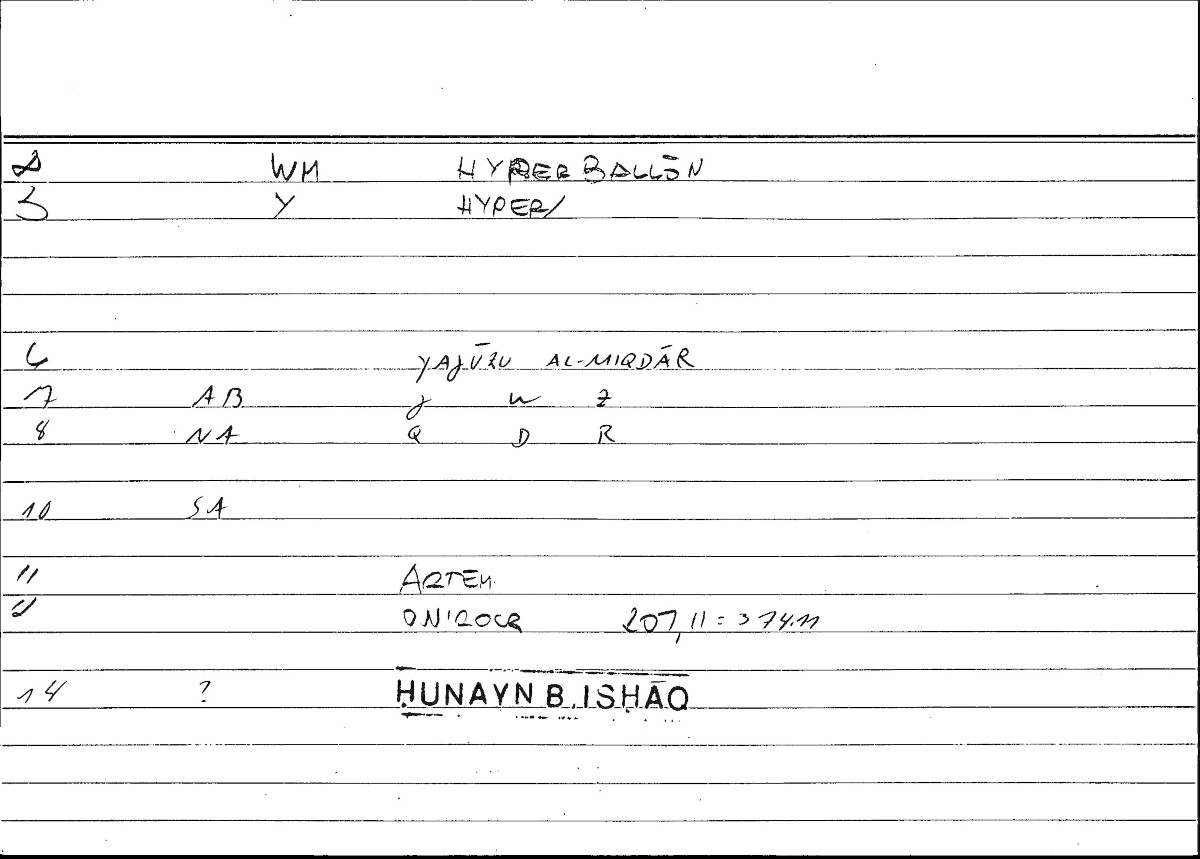 2 WM HYPERBALLŌN
3 Y HYPER/
6 YAJŪZU AL-MIQDĀR
7 AB J W Z
8 NA Q D R
10 SA
11 ARTEM
12 ONIROCR 207,11 = 374.11
14 ? ḤUNAYN B. ISḤĀQ